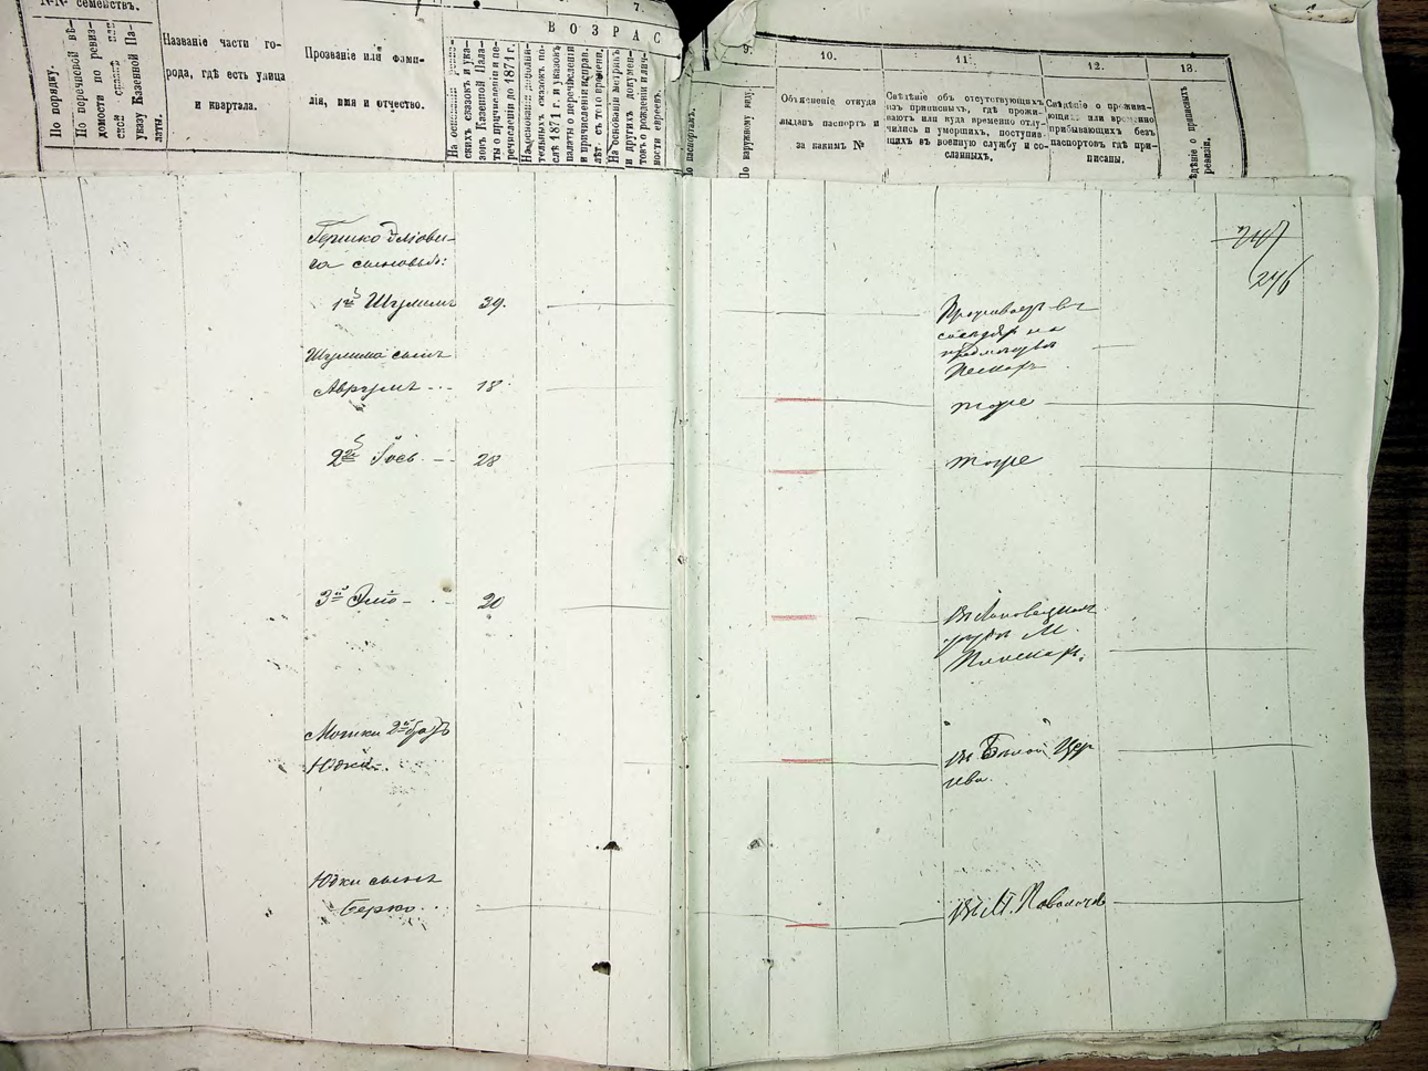 №№ семействъ.
По порядку.
По перечневой вѣ-
домости по ревиз-
ской сказкѣ или
указу Казенной Па-
латы.
Названіе части го-
рода, гдѣ есть улица
и квартала.
Прозваніе или фами-
лія, имя и отчество.
7.
ВОЗРАС
На основаніи ревиз-
скихъ сказокъ и ука-
зовъ Казенной Пала-
ты о причисленіи и пе-
речисленіи до 1871 г.
На основаніи дополни-
тельныхъ сказокъ по-
слѣ 1871 г. и указовъ
палаты о перечисленіи
и причисленіи исправ.
лѣт. съ того времени.
На основаніи метрикъ
и другихъ докумен-
товъ о рожденіи и лич-
ности евреевъ.
По паспортамъ.
9.
По наружному виду.
10.
Объясненіе откуда
выданъ паспортъ и
за какимъ №
11.
Свѣдѣніе объ отсутствующихъ
изъ приписныхъ, гдѣ прожи-
ваютъ или куда временно отлу-
чились и умершихъ, поступив-
щихъ въ военную службу и со-
сланныхъ.
12.
Свѣдѣніе о прожива-
ющихъ или временно
прибывающихъ безъ
паспортовъ гдѣ при-
писаны.
13.
ѣдѣніе о приписныхъ
ревизіи.
247
246
Гершко Эліови-
ча сыновья:
1й Шулимъ 39.
Проживаетъ въ
Шулима сынъ
Аврумъ 18.
тоже
2й 28
тоже
3й Эліо 20
Въ
м.
Мошки 2й братъ
Юдка
Въ Бѣлой Цер
кви.
Юдки сынъ
Берко
Въ М. Паволочь